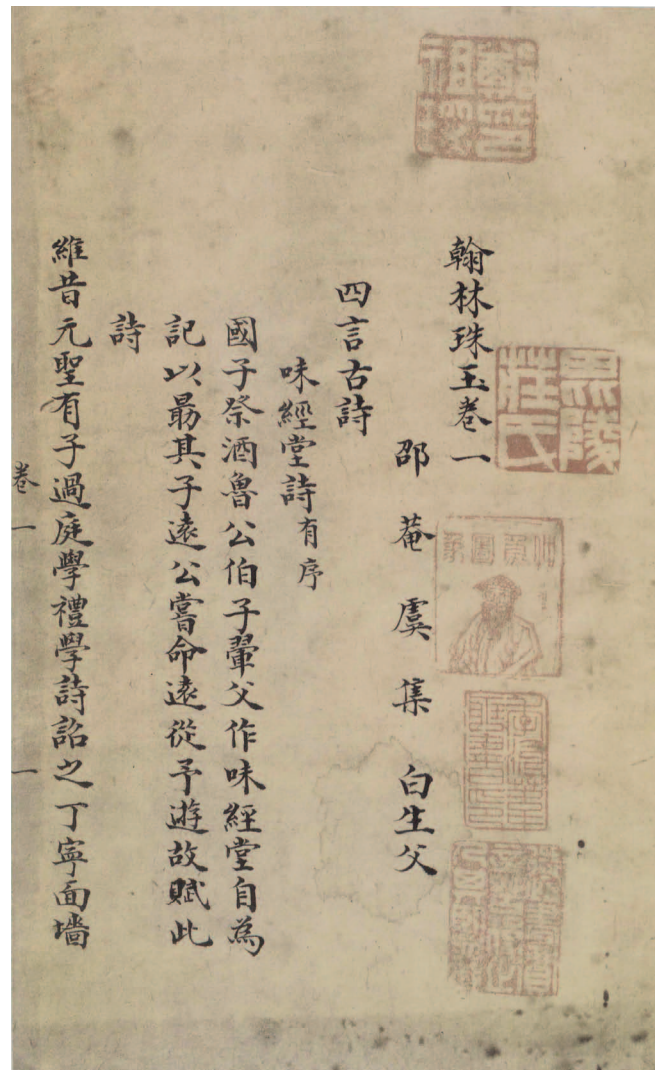 翰林珠玉卷一
邵菴虞集白生父
四言古詩
味經堂詩有序
國子祭酒魯公伯子翬父作味經堂自為
記以勗其子遠公嘗命遠從予遊故賦此
詩
維昔元聖有子過庭學禮學詩詔之丁寧面墻
卷一
一
莊氏